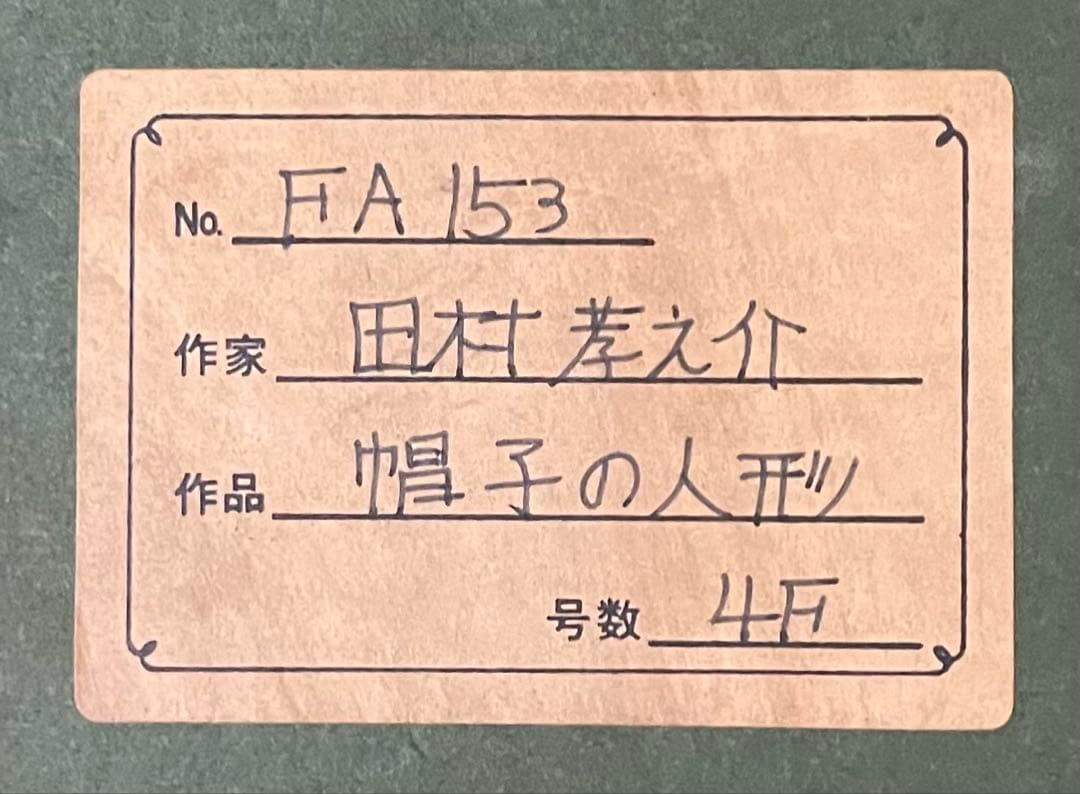 No. FA 153
作家 田村 孝之介
作品 帽子の人形
号数 4F